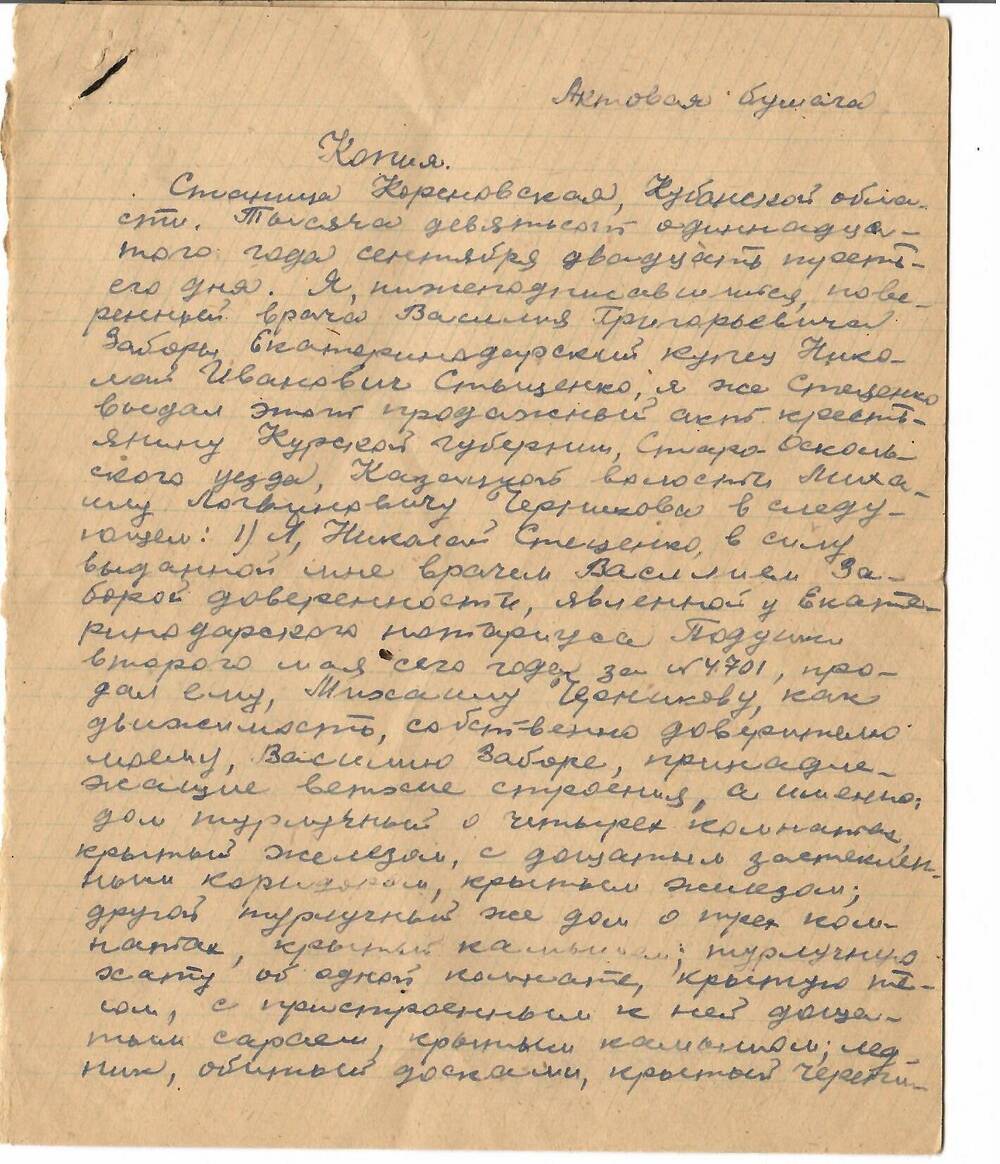 Актовая бумага
Копия.
Станица Кореновская, Кубанской обла-
сти. Тысяча девятьсот одиннадца-
того года сентября двадцать треть-
его дня. Я, нижеподписавшийся, пове-
ренный врача Василия Григорьевича
Заборы, Екатеринодарский купец Нико-
лай Иванович Стыценко, я же Стеценко
выдал этот продажный акт кресть-
янину Курской губернии, Старо-Осколь-
ского уезда, Казацкой волости Миха-
илу Логвиновичу Черникова в следу-
ющем: 1) Я, Николай Стеценко, в силу
выданной мне врачем Василием За-
борой доверенности, явленной у Екате-
ринодарского нотариуса Подушки
второго мая сего года за №4701, про-
дал ему, Михаилу Черникову, как
движимость, собственно доверителю
моему, Василию Заборе, принадле-
жащие ветхие строения, а именно:
дом турлучный о четырех комнатах,
крытый железом, с дощатым застеклен-
ным коридором, крытым железом;
другой турлучный же дом о трех ком-
натах, крытый камышом; турлучную
хату об одной комнате, крытую те-
сом, с пристроенным к ней доща-
тым сараем, крытым камышом; лед-
ник, обитый досками, крытый черепи-